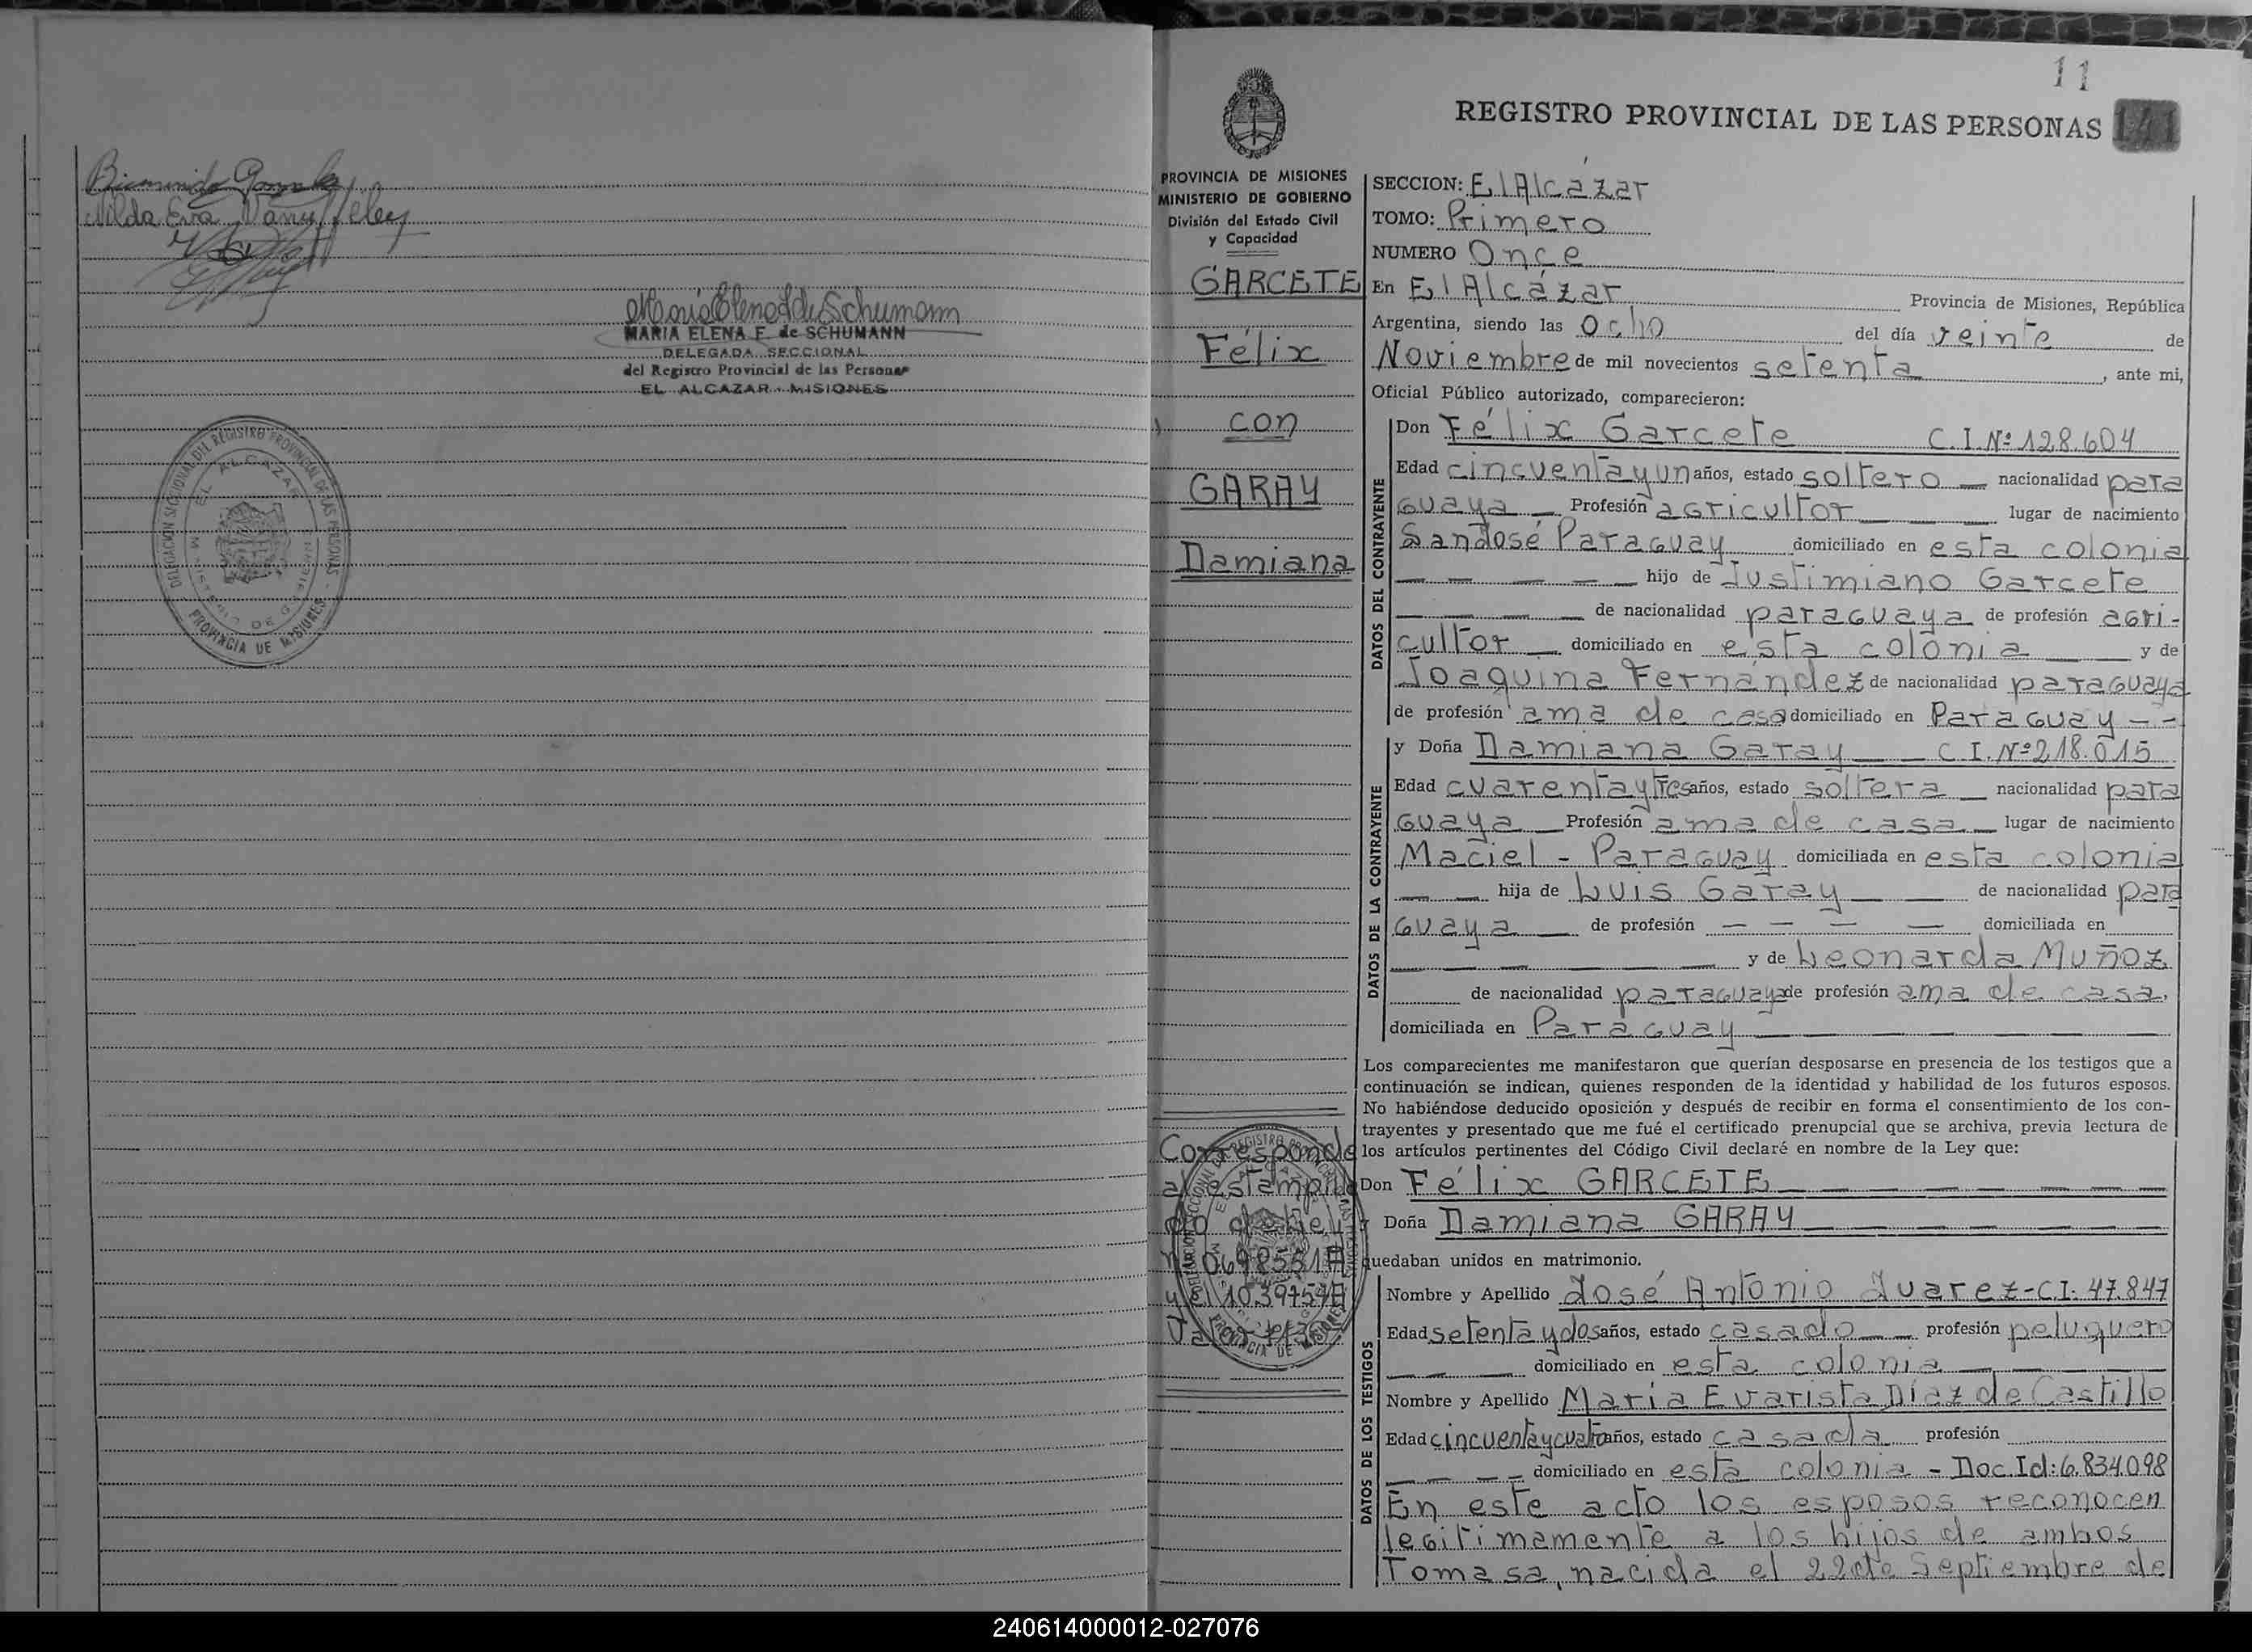 Nilda Eva
María Elena F. de Schumann
MARIA ELENA F. de SCHUMANN
DELEGADA SECCIONAL
del Registro Provincial de las Personas
EL ALCAZAR - MISIONES
DELEGACION SECCIONAL DEL REGISTRO PROVINCIAL DE LAS PERSONAS
EL ALCAZAR
PROVINCIA DE MISIONES
11
REGISTRO PROVINCIAL DE LAS PERSONAS 141
PROVINCIA DE MISIONES
MINISTERIO DE GOBIERNO
División del Estado Civil
y Capacidad
GARCETE
Félix
con
GARAY
Damiana
Corresponde
SECCION: El Alcázar
TOMO: Primero
NUMERO Once
En El Alcázar Provincia de Misiones, República
Argentina, siendo las Ocho del día veinte de
Noviembre de mil novecientos setenta, ante mi,
Oficial Público autorizado, comparecieron:
DATOS DEL CONTRAYENTE
Don Félix Garcete C.I.Nº 128.604
Edad cincuenta y un años, estado soltero — nacionalidad para
guaya — Profesión agricultor — — lugar de nacimiento
San José Paraguay domiciliado en esta colonia
— — — — hijo de Justimiano Garcete
— — — de nacionalidad paraguaya de profesión agri-
cultor — domiciliado en esta colonia — — y de
Joaquina Fernández de nacionalidad paraguaya
de profesión ama de casa domiciliado en Paraguay - -
DATOS DE LA CONTRAYENTE
y Doña Damiana Garay — — C I. Nº 218.015
Edad cuarenta y tres años, estado soltera — nacionalidad para
guaya — Profesión ama de casa — lugar de nacimiento
Maciel - Paraguay domiciliada en esta colonia
— — hija de Luis Garay — — de nacionalidad para
guaya — de profesión — — — — domiciliada en
— — — y de Leonarda Muñoz
de nacionalidad paraguaya de profesión ama de casa,
domiciliada en Paraguay — — — —
Los comparecientes me manifestaron que querían desposarse en presencia de los testigos que a
continuación se indican, quienes responden de la identidad y habilidad de los futuros esposos.
No habiéndose deducido oposición y después de recibir en forma el consentimiento de los con-
trayentes y presentado que me fué el certificado prenupcial que se archiva, previa lectura de
los artículos pertinentes del Código Civil declaré en nombre de la Ley que:
Don Félix GARCETE — — — — — —
Doña Damiana GARAY — — — — — —
quedaban unidos en matrimonio.
DATOS DE LOS TESTIGOS
Nombre y Apellido José Antonio Juarez - C.I. 47.847
Edad setenta y dos años, estado casado — — profesión peluquero
— — — domiciliado en esta colonia — — —
Nombre y Apellido María Evarista Díaz de Castillo
Edad cincuenta y cuatro años, estado casada profesión
— — — — domiciliado en esta colonia - Doc. Id: 6.834.098
En este acto los esposos reconocen
legitimamente a los hijos de ambos
Tomasa, nacida el 22 de Septiembre de
240614000012-027076